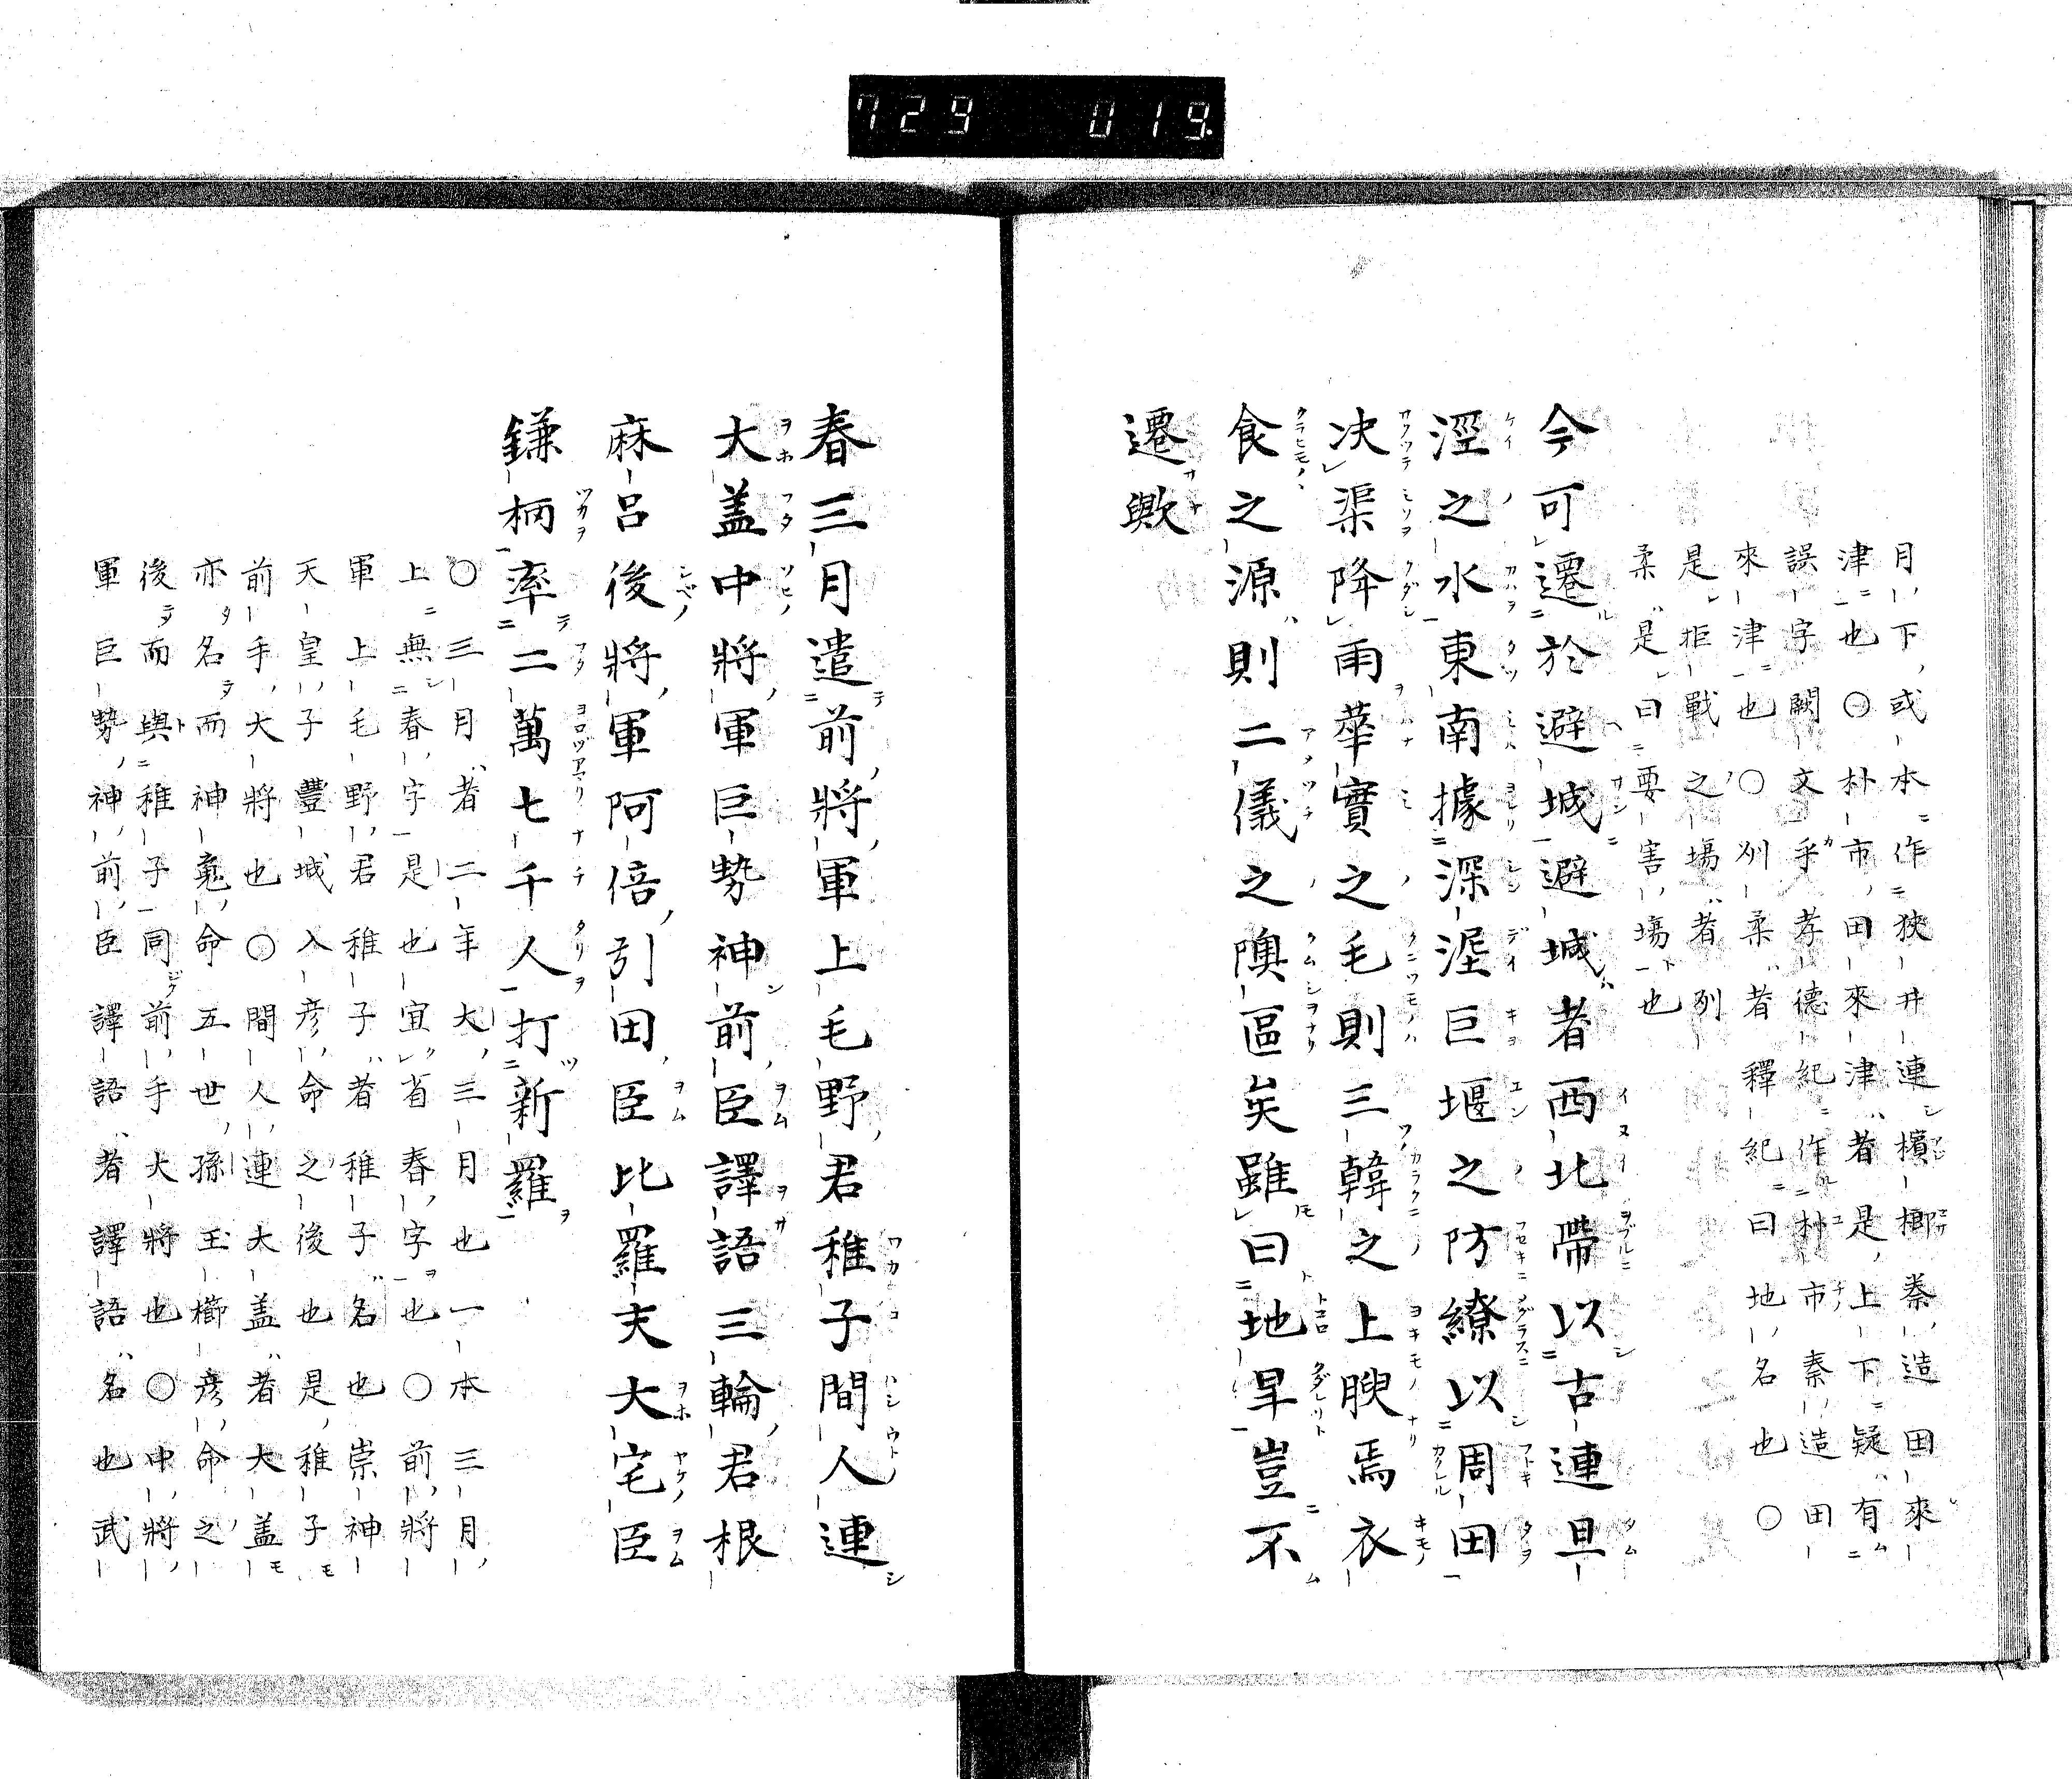 729 019
月下或本作狹井連檳榔秦造田來
津也〇朴市田來津者是上下疑有
誤字闕文乎孝德紀作朴市秦造田
來津也〇州柔者釋紀曰地名也〇
是拒戰之場者列
柔是曰要害場也
今可遷於避城避城者西北帶以古連旦
涇之水東南據深涅巨堰之防繚以周田
决渠降雨華實之毛則三韓之上腴焉衣
食之源則二儀之隩區矣雖曰地早豈不
遷歟
春三月遣前將軍上毛野君稚子間人連
大盖中將軍巨勢神前臣譯語三輪君根
麻呂後將軍阿倍引田臣比羅夫大宅臣
鎌柄率二萬七千人打新羅
〇三月者二年大三月也一本三月
上無春字是也宜省春字也〇前將
軍上毛野君稚子者稚子名也崇神
天皇子豐城入彦命之後也是稚子
前手大將也〇間人連大盖者大盖
亦名而神䨇命五世孫玉櫛彦命之
後而與稚子同前手大將也〇中將
軍巨勢神前臣譯語者譯語名也武